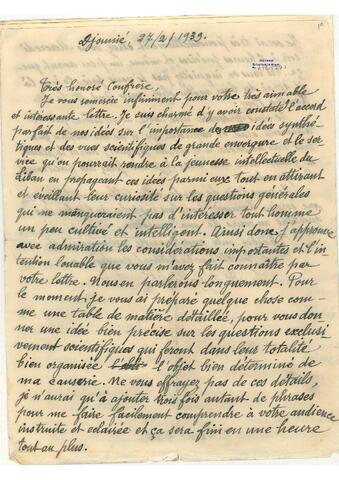 Djounié, 27/2/1939.
Très honoré Confrère,
Je vous remercie infiniment pour votre très aimable
et intéressante lettre. Je suis charmé d'y avoir constaté l'accord
parfait de nos idées sur l'importance des idées synthé-
tiques et des vues scientifiques de grande envergure et le ser-
vice qu'on pourrait rendre à la jeunesse intellectuelle du
Liban en propageant ces idées parmi eux tout en attirant
et éveillant leur curiosité sur les questions générales
qui ne manqueraient pas d'intéresser tout homme
un peu cultivé et intelligent. Ainsi donc j'approuve
avec admiration les considérations importantes et l'in-
tention louable que vous m'avez fait connaître par
votre lettre. Nous en parlerons longuement. Pour
le moment je vous ai préparé quelque chose com-
me une table de matière détaillée, pour vous don-
ner une idée bien précise sur les questions exclusi-
vement scientifiques qui feront dans leur totalité
bien organisée l'objet bien déterminé de
ma causerie. Ne vous effrayez pas de ces détails,
je n'aurai qu'à ajouter trois fois autant de phrases
pour me faire facilement comprendre à votre audience
instruite et eclairée et ça sera fini en une heure
tout au plus.